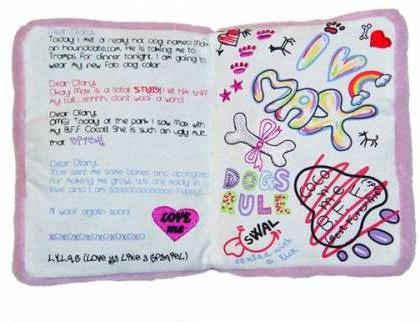 Dear Diary,
Today I met a really hot dog named Max
on hounddate.com. He is taking me to
Tramps for dinner tonight. I am going to
wear my new Fab dog collar...
Dear Diary,
Okay Max is a total STUD!! I let him sniff
my tail...shhhh, don't woof a word
Dear Diary,
OMG! Today at the park I saw Max with
my B.F.F Coco!!! She is such an ugly mutt,
that
Dear Diary,
Max sent me some bones and apologized
for making me growl. We are madly in
love and I am soooooooooooo happy!
I'll woof again soon!
xoxoxoxoxoxoxoxo
L.Y.L.A.S (Love ya Like a Spaniel)
LOVE
me
I
MAX
DOGS
RULE
SWAL
sealed with
a lick
Coco
is me
B.F.F
Best Furiend